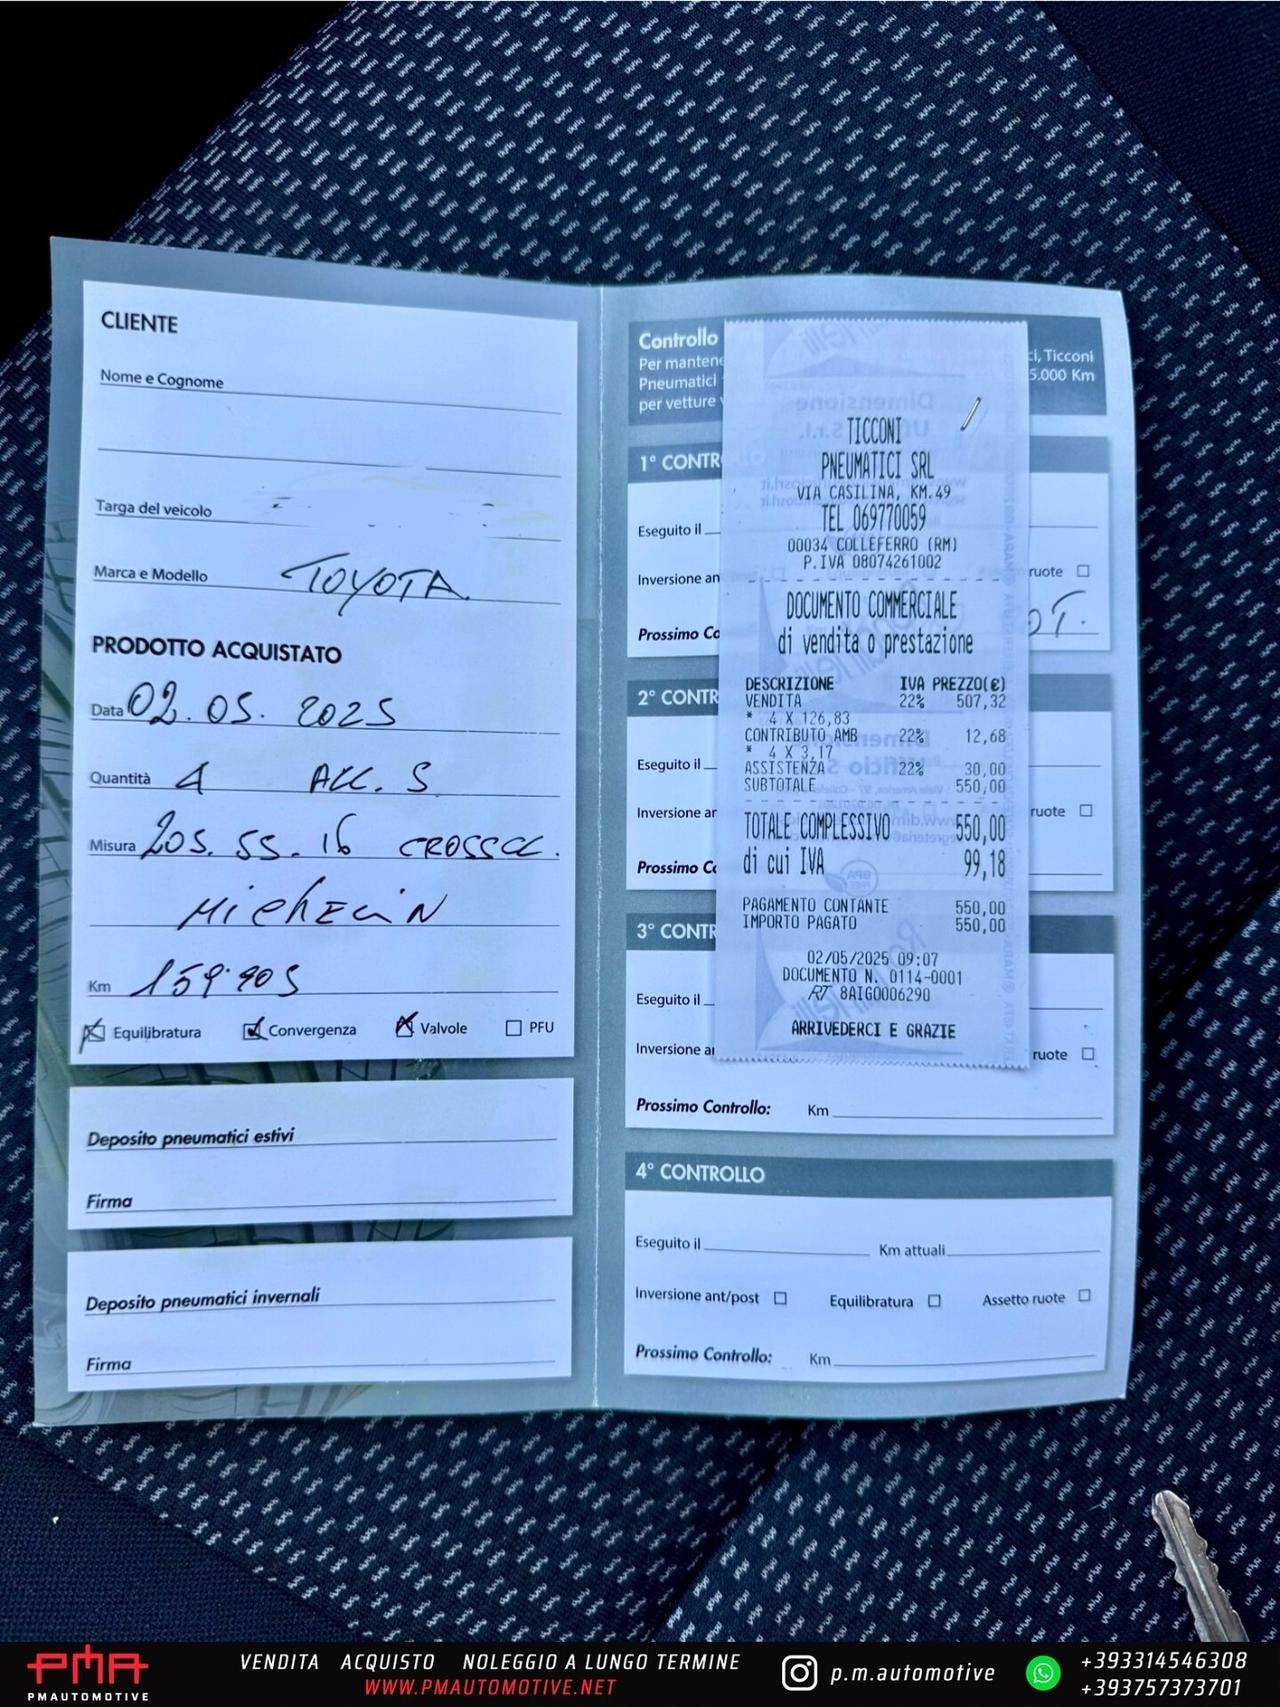 CLIENTE
Nome e Cognome
Targa del veicolo
Marca e Modello TOYOTA
PRODOTTO ACQUISTATO
Data 02.05.2025
Quantità 4 ALL. S
Misura 205.55.16 CROSSCL.
MICHELIN
Km 159.905
Equilibratura Convergenza Valvole PFU
Deposito pneumatici estivi
Firma
Deposito pneumatici invernali
Firma
Controllo
Per mantene
Pneumatici
per vetture
ci, Ticconi
5.000 Km
1° CONTR
Eseguito il
Inversione an
ruote
Prossimo Co
OT.
2° CONTR
Eseguito il
Inversione ar
ruote
Prossimo Co
3° CONTR
Eseguito il
Inversione a
ruote
Prossimo Controllo: Km
4° CONTROLLO
Eseguito il Km attuali
Inversione ant/post Equilibratura Assetto ruote
Prossimo Controllo: Km
TICCONI
PNEUMATICI SRL
VIA CASILINA, KM.49
TEL 069770059
00034 COLLEFERRO (RM)
P.IVA 08074261002
DOCUMENTO COMMERCIALE
di vendita o prestazione
DESCRIZIONE IVA PREZZO(€)
VENDITA 22% 507,32
* 4 X 126,83
CONTRIBUTO AMB 22% 12,68
* 4 X 3,17
ASSISTENZA 22% 30,00
SUBTOTALE 550,00
TOTALE COMPLESSIVO 550,00
di cui IVA 99,18
PAGAMENTO CONTANTE 550,00
IMPORTO PAGATO 550,00
02/05/2025 09:07
DOCUMENTO N. 0114-0001
RT 8AIG0006290
ARRIVEDERCI E GRAZIE
PMA
PMAUTOMOTIVE
VENDITA ACQUISTO NOLEGGIO A LUNGO TERMINE
WWW.PMAUTOMOTIVE.NET
p.m.automotive
+393314546308
+393757373701